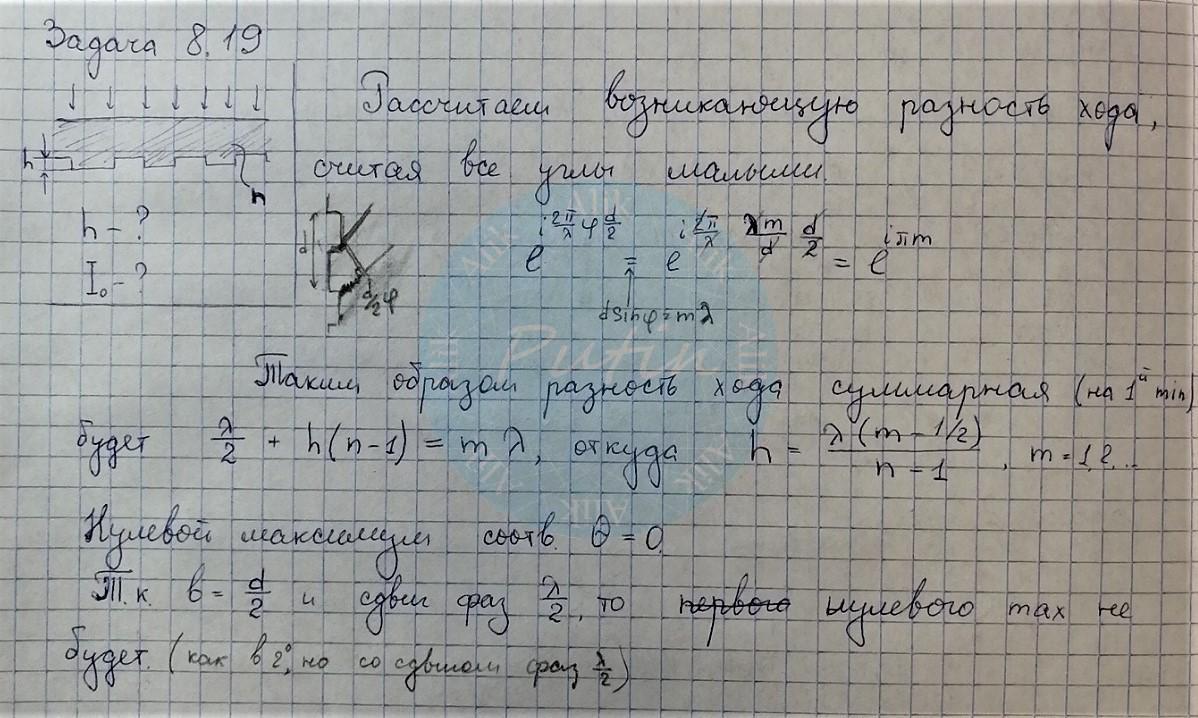 Задача 8.19
Рассчитаем возникающую разность хода,
считая все углы малыми.
h
n
h - ?
I₀ - ?
d
d/2 φ
e^{i 2π/λ φ d/2} = e^{i 2π/λ λm/d d/2} = e^{iπm}
d sinφ = mλ
Таким образом разность хода суммарная (на 1й min)
будет λ/2 + h(n-1) = mλ, откуда h = λ(m-1/2)/(n-1), m = 1,2...
Нулевой максимум соотв. θ = 0.
Т.к. b = d/2 и сдвиг фаз λ/2, то первого нулевого max не
будет. (как в 2°, но со сдвигом фаз λ/2)
Putin
Alik
Alik
Alik
Alik